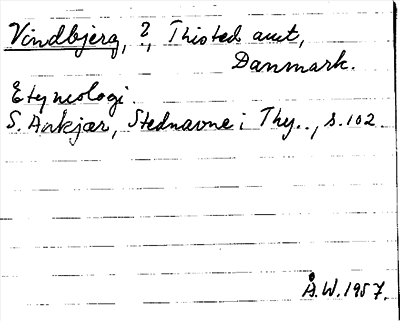 Vindbjerg, ?, Thisted amt,
Danmark.
Etymologi.
S. Aakjær, Stednavne i Thy.., s. 102
Å.W. 1957.